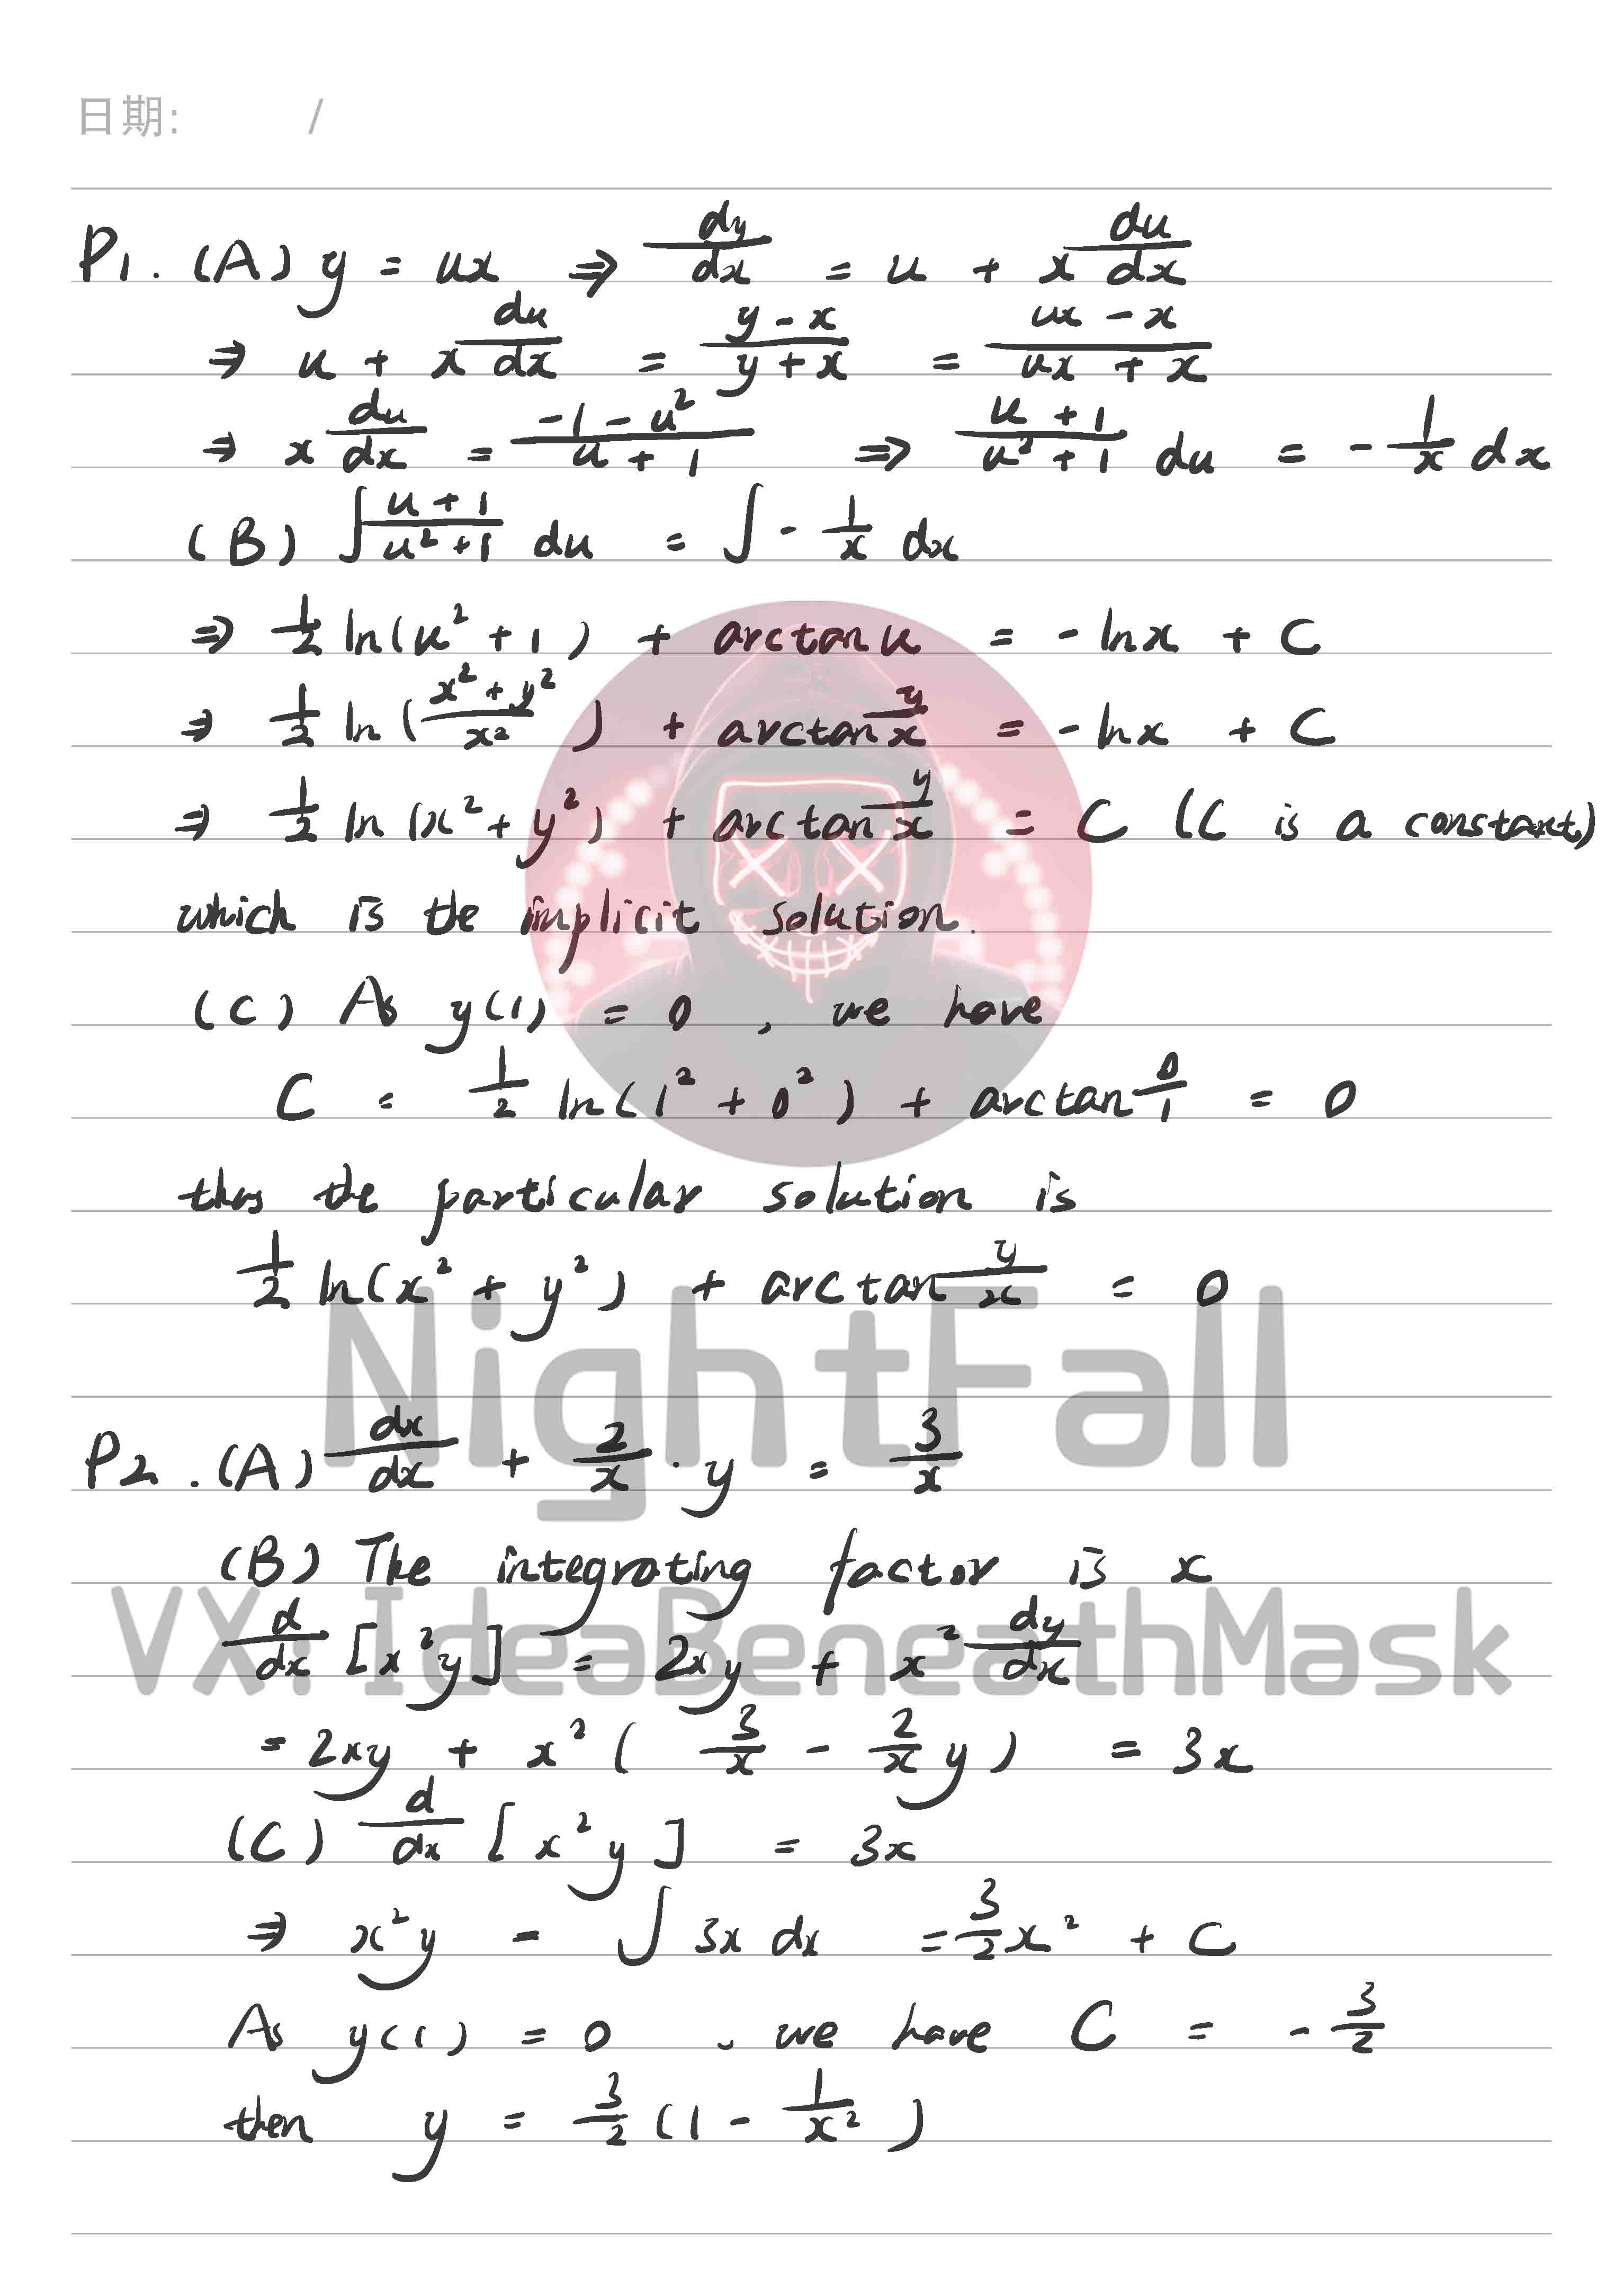 日期: /
P1. (A) y = ux ⇒ dy/dx = u + x du/dx
⇒ u + x du/dx = (y - x)/(y + x) = (ux - x)/(ux + x)
⇒ x du/dx = (-1 - u²)/(u + 1) ⇒ (u + 1)/(u² + 1) du = - 1/x dx
(B) ∫ (u + 1)/(u² + 1) du = ∫ - 1/x dx
⇒ 1/2 ln(u² + 1) + arctan u = - ln x + C
⇒ 1/2 ln((x² + y²)/x²) + arctan y/x = - ln x + C
⇒ 1/2 ln(x² + y²) + arctan y/x = C (C is a constant)
which is the implicit solution.
(C) As y(1) = 0, we have
C = 1/2 ln(1² + 0²) + arctan 0/1 = 0
thus the particular solution is
1/2 ln(x² + y²) + arctan y/x = 0
NightFall
P2. (A) dx/dx + 2/x · y = 3/x
(B) The integrating factor is x
VX: IdeaBeneathMask
d/dx [x²y] = 2xy + x² dy/dx
= 2xy + x² (3/x - 2/x y) = 3x
(C) d/dx [x²y] = 3x
⇒ x²y = ∫ 3x dx = 3/2 x² + C
As y(1) = 0, we have C = - 3/2
then y = 3/2 (1 - 1/x²)